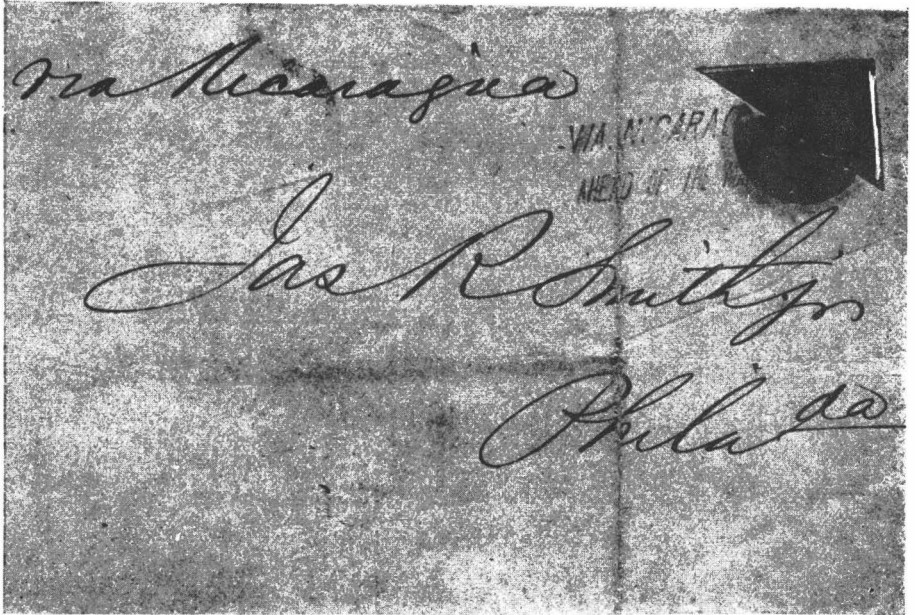 via Nicaragua
VIA. NICARAG
AHEAD OF THE MA
Jas R Smith Jr
Phila da